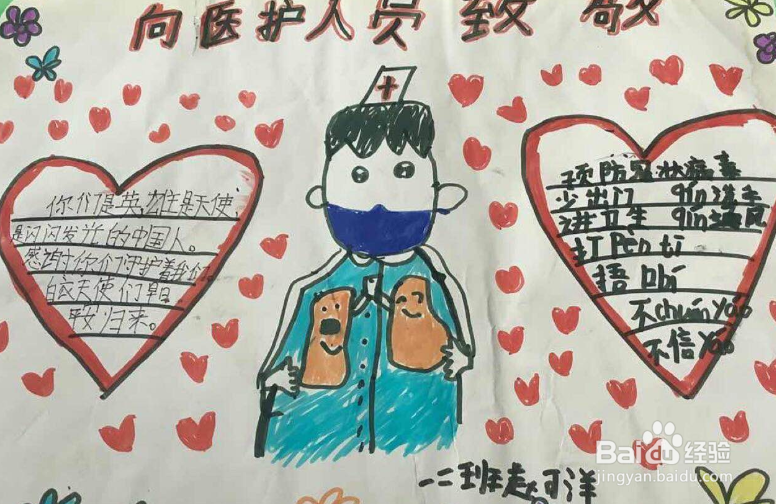 向医护人员致敬
你们是英雄是天使,
是闪闪发光的中国人。
感谢你们守护着
白衣天使们早日
平安归来。
预防冠状病毒
少出门 qin洗手
进卫生 qin通风
打pēn tì
捂
不chuán yáo
不信yáo
一二班赵可洋
Baidu经验
jingyan.baidu.com